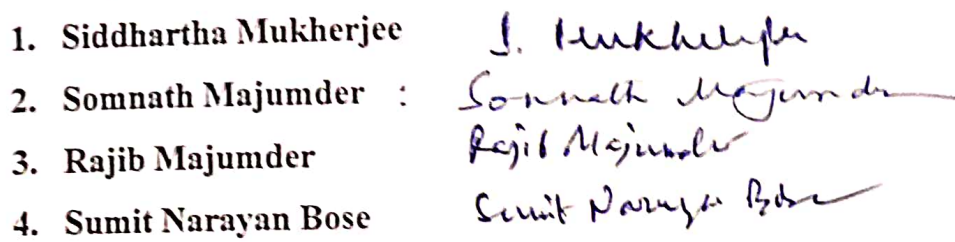 1. Siddhartha Mukherjee S. Mukherjee
2. Somnath Majumder : Somnath Majumder
3. Rajib Majumder Rajib Majumder
4. Sumit Narayan Bose Sumit Narayan Bose